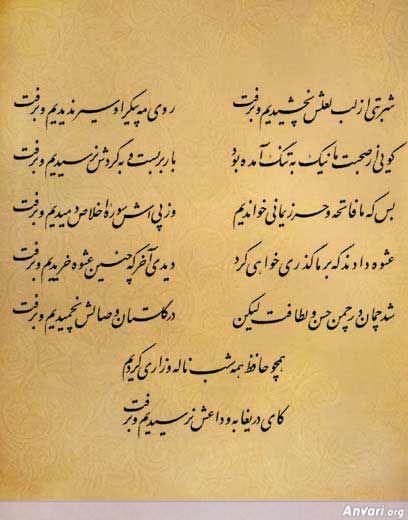 شربتی از لب لعلش نچشیدیم و برفت روی مه پیکر او سیر ندیدیم و برفت
گویی از صحبت ما نیک به تنگ آمده بود بار بربست و به گردش نرسیدیم و برفت
بس که ما فاتحه و حرز یمانی خواندیم وز پی اش سوره اخلاص دمیدیم و برفت
عشوه دادند که بر ما گذری خواهی کرد دیدی آخر که چنین عشوه خریدیم و برفت
شد چمان در چمن حسن و لطافت لیکن در گلستان وصالش نچمیدیم و برفت
همچو حافظ همه شب ناله و زاری کردیم
کای دریغا به وداعش نرسیدیم و برفت
Anvari.org